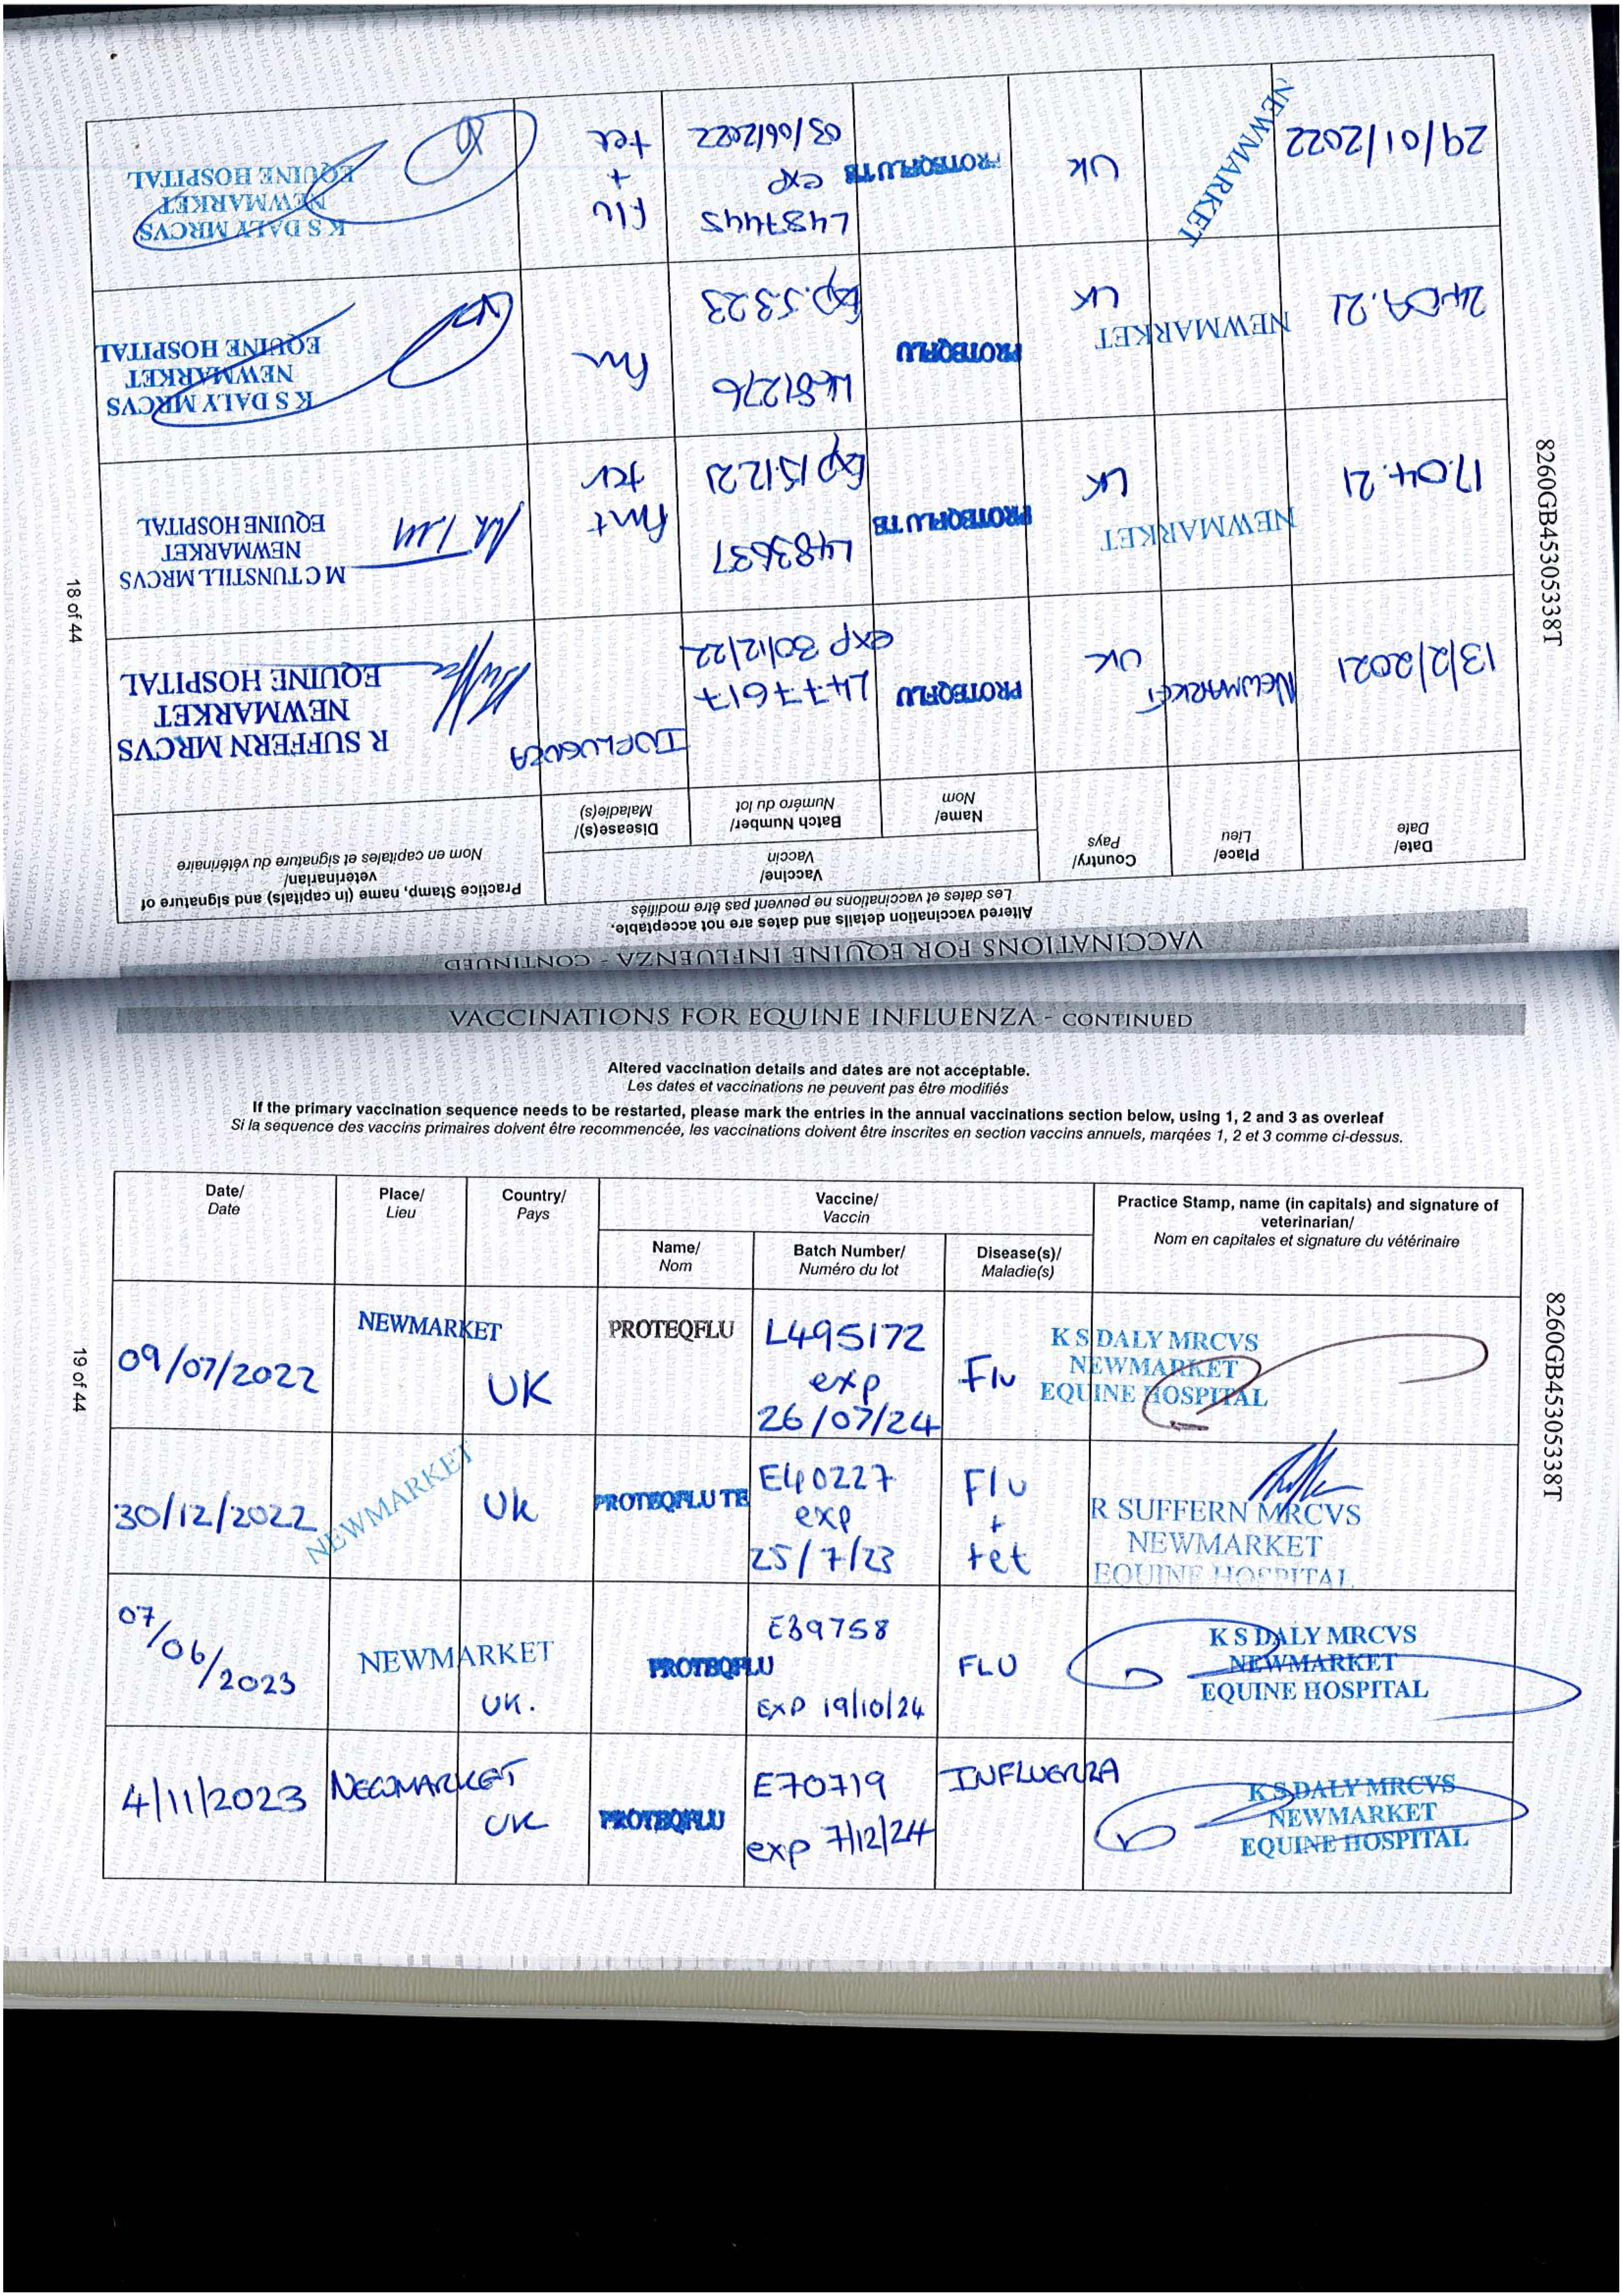 VACCINATIONS FOR EQUINE INFLUENZA - CONTINUED
Altered vaccination details and dates are not acceptable.
Les dates et vaccinations ne peuvent pas être modifiés
Date/
Date
Place/
Lieu
Country/
Pays
Vaccine/
Vaccin
Name/
Nom
Batch Number/
Numéro du lot
Disease(s)/
Maladie(s)
Practice Stamp, name (in capitals) and signature of
veterinarian/
Nom en capitales et signature du vétérinaire
13/2/2021
NEWMARKET
UK
PROTEQFLU
L477617
exp 30/12/22
INFLUENZA
R SUFFERN MRCVS
NEWMARKET
EQUINE HOSPITAL
17.04.21
NEWMARKET
UK
PROTEQFLU TE
L483637
Exp 15.12.21
tet
M C TUNSTILL MRCVS
NEWMARKET
EQUINE HOSPITAL
24.09.21
NEWMARKET
UK
PROTEQFLU
Exp.5.3.23
K S DALY MRCVS
NEWMARKET
EQUINE HOSPITAL
29/01/2022
NEWMARKET
UK
PROTEQFLU TE
L487445
exp
03/06/2022
Flu
+
tet
K S DALY MRCVS
NEWMARKET
EQUINE HOSPITAL
8260GB45305338T
18 of 44
VACCINATIONS FOR EQUINE INFLUENZA - CONTINUED
Altered vaccination details and dates are not acceptable.
Les dates et vaccinations ne peuvent pas être modifiés
If the primary vaccination sequence needs to be restarted, please mark the entries in the annual vaccinations section below, using 1, 2 and 3 as overleaf
Si la sequence des vaccins primaires doivent être recommencée, les vaccinations doivent être inscrites en section vaccins annuels, marqées 1, 2 et 3 comme ci-dessus.
Date/
Date
Place/
Lieu
Country/
Pays
Vaccine/
Vaccin
Name/
Nom
Batch Number/
Numéro du lot
Disease(s)/
Maladie(s)
Practice Stamp, name (in capitals) and signature of
veterinarian/
Nom en capitales et signature du vétérinaire
09/07/2022
NEWMARKET
UK
PROTEQFLU
L495172
exp
26/07/24
Flu
K S DALY MRCVS
NEWMARKET
EQUINE HOSPITAL
30/12/2022
NEWMARKET
Uk
PROTEQFLU TE
E40227
exp
25/7/23
Flu
+
tet
R SUFFERN MRCVS
NEWMARKET
EQUINE HOSPITAL
07/06/2023
NEWMARKET
UK.
PROTEQFLU
E39758
EXP 19/10/24
FLU
K S DALY MRCVS
NEWMARKET
EQUINE HOSPITAL
4/11/2023
NEWMARKET
UK
PROTEQFLU
E70719
exp 7/12/24
INFLUENZA
K S DALY MRCVS
NEWMARKET
EQUINE HOSPITAL
8260GB45305338T
19 of 44